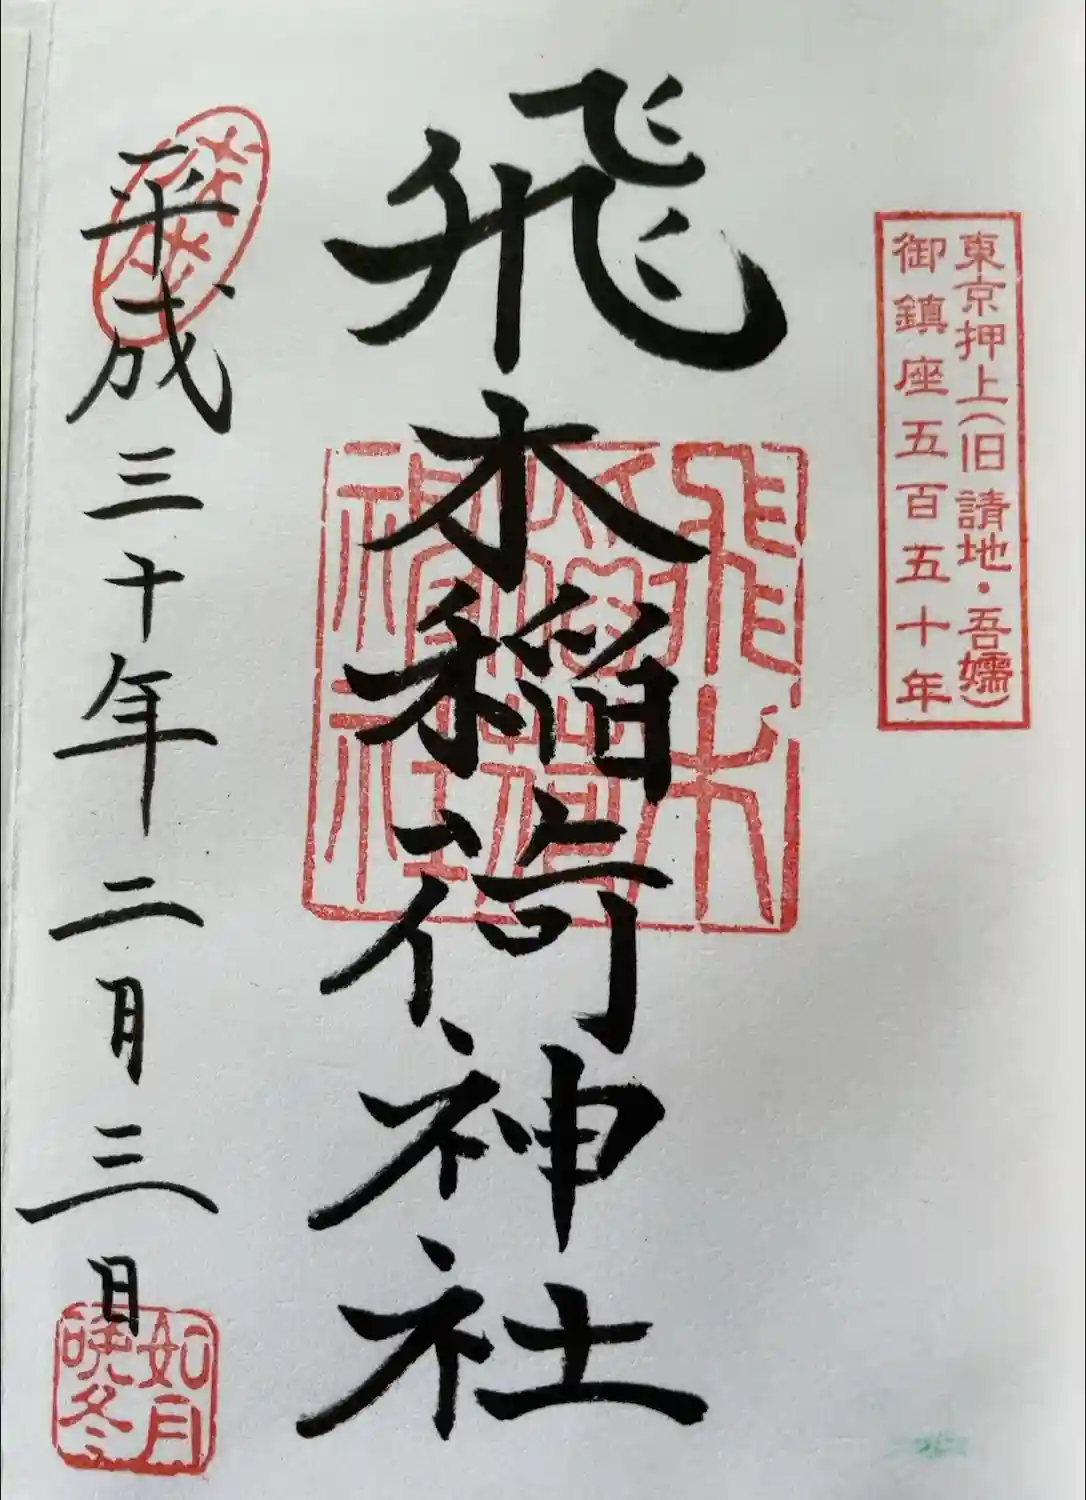 東京押上(旧請地・吾嬬)
御鎮座五百五十年
飛木稲荷神社
飛木稲荷神社
平成三十年二月三日
如月
晩冬